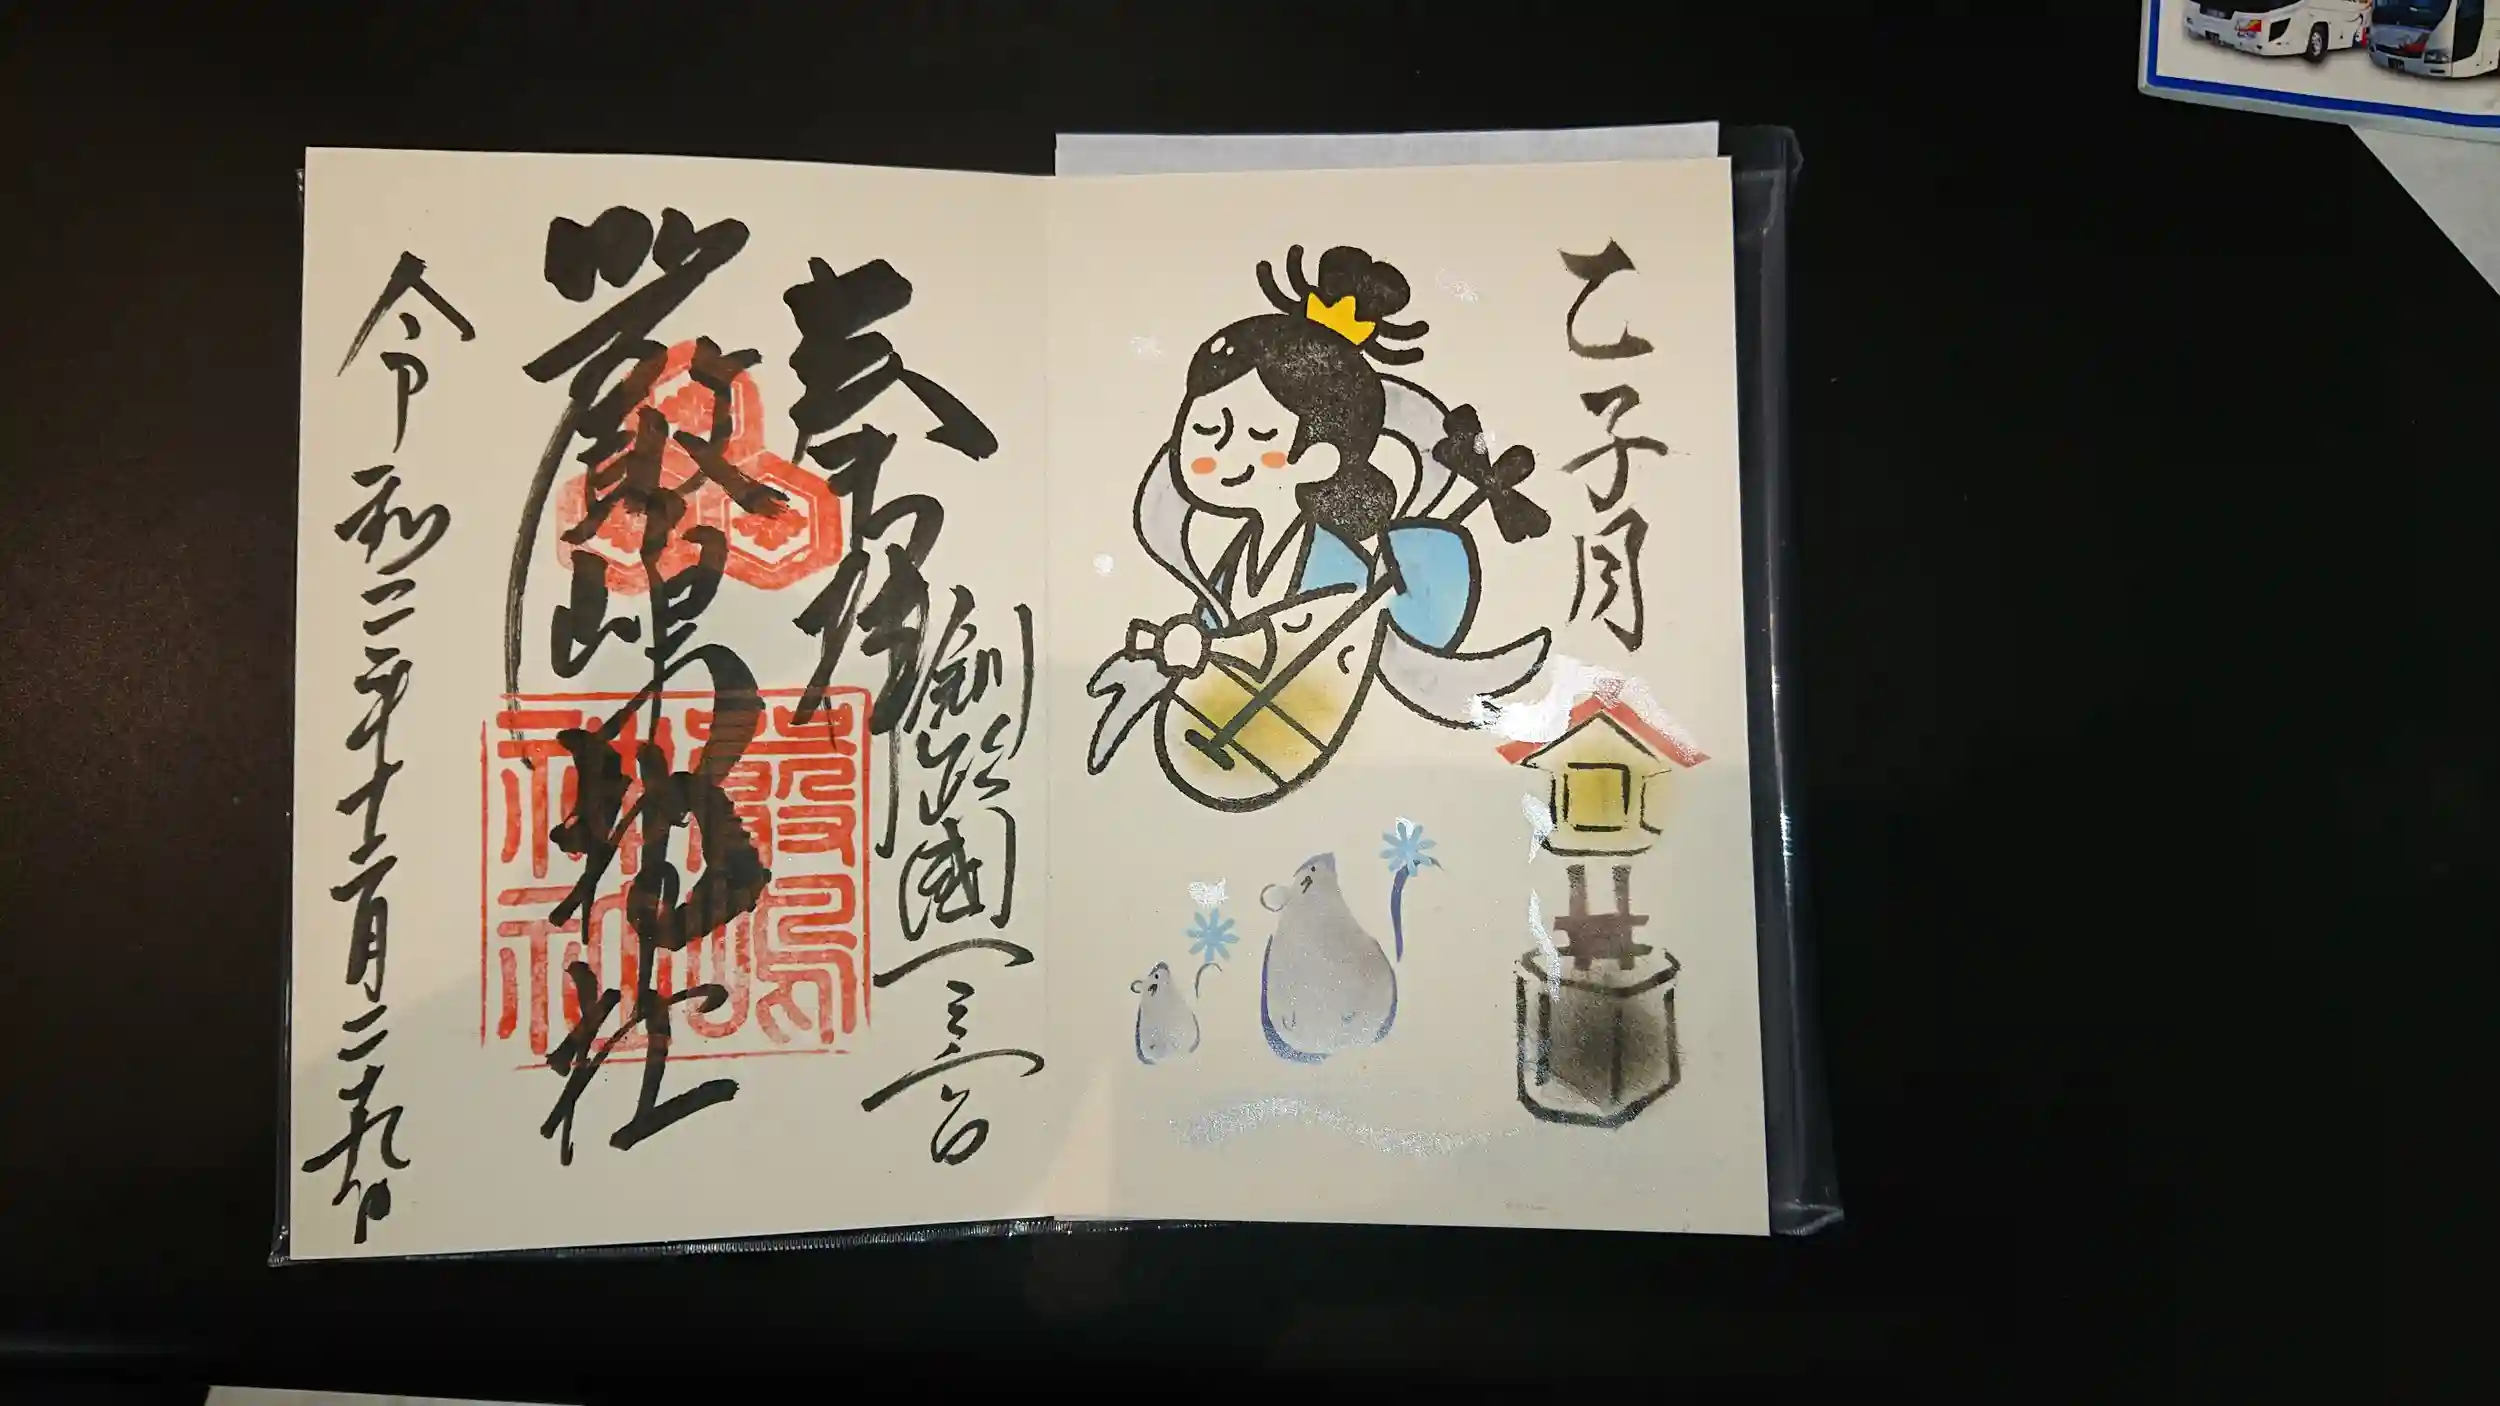 乙子月
釧路國一之宮
奉拝
嚴嶋神社
嚴嶋
神社
令和二年十二月二十九日